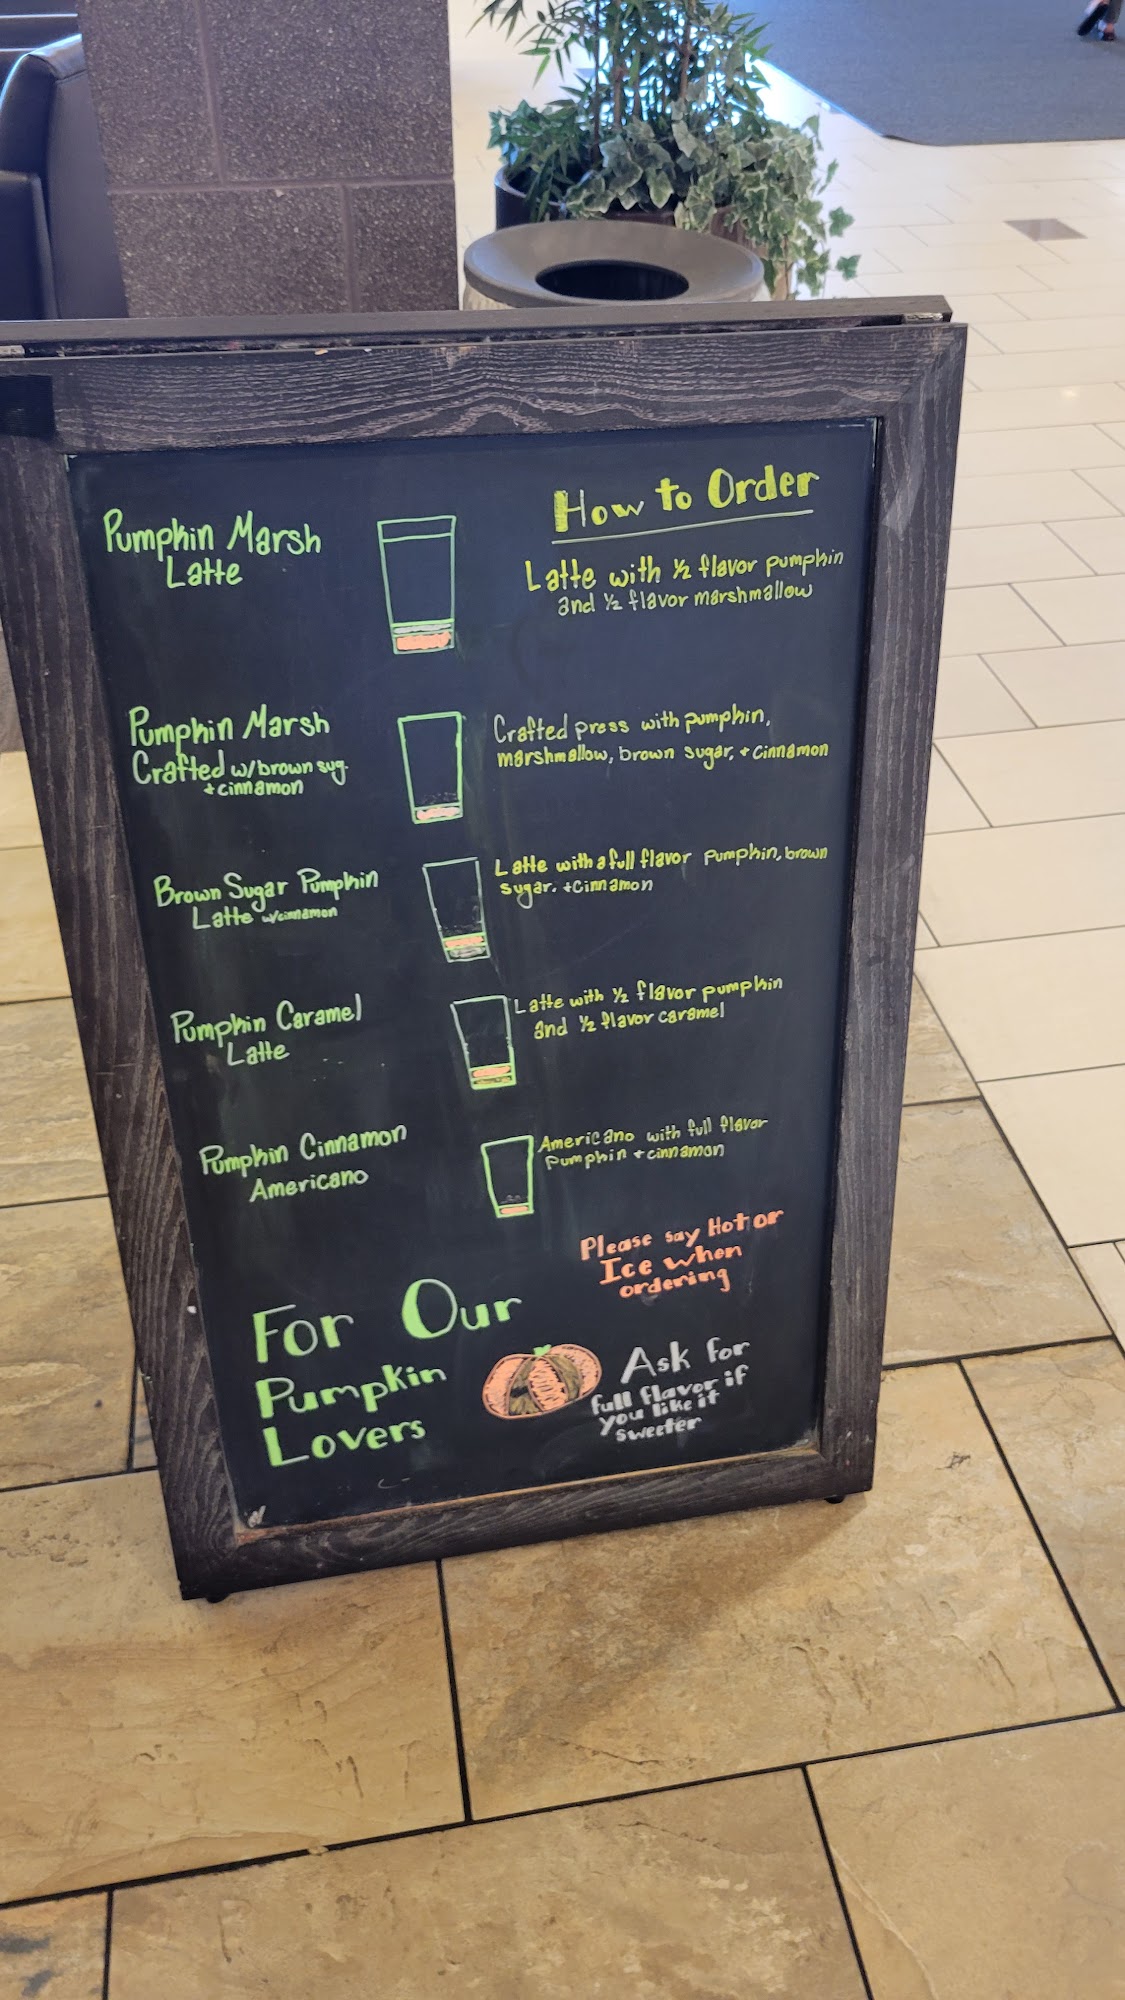 How to Order
Pumpkin Marsh
Latte
Latte with ½ flavor pumpkin
and ½ flavor marshmallow
Pumpkin Marsh
Crafted w/brown sug.
+cinnamon
Crafted press with pumpkin,
marshmallow, brown sugar, + cinnamon
Brown Sugar Pumpkin
Latte w/cinnamon
Latte with a full flavor pumpkin, brown
sugar. +cinnamon
Pumpkin Caramel
Latte
Latte with ½ flavor pumpkin
and ½ flavor caramel
Pumpkin Cinnamon
Americano
Americano with full flavor
Pumpkin + cinnamon
Please say Hot or
Ice when
ordering
For Our
Pumpkin
Lovers
Ask for
full flavor if
you like it
sweeter